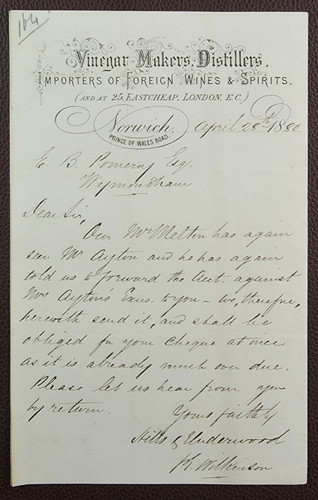 164
Vinegar Makers, Distillers,
IMPORTERS OF FOREIGN WINES & SPIRITS,
(AND AT 25, EASTCHEAP, LONDON, E.C.)
Norwich, April 28th 1880
PRINCE OF WALES ROAD.
E. B. Pomeroy Esq
Wymondham
Dear Sir,
Our Mr Melton has again
seen Mr Ayton and he has again
told us to forward the Acct. against
Mrs Ayton's Exus. to you - we, therefore,
herewith send it, and shall be
obliged for your Cheque at once
as it is already much over due.
Please let us hear from you
by return.
Yours faithfy
Hills & Underwood
Wilkinson